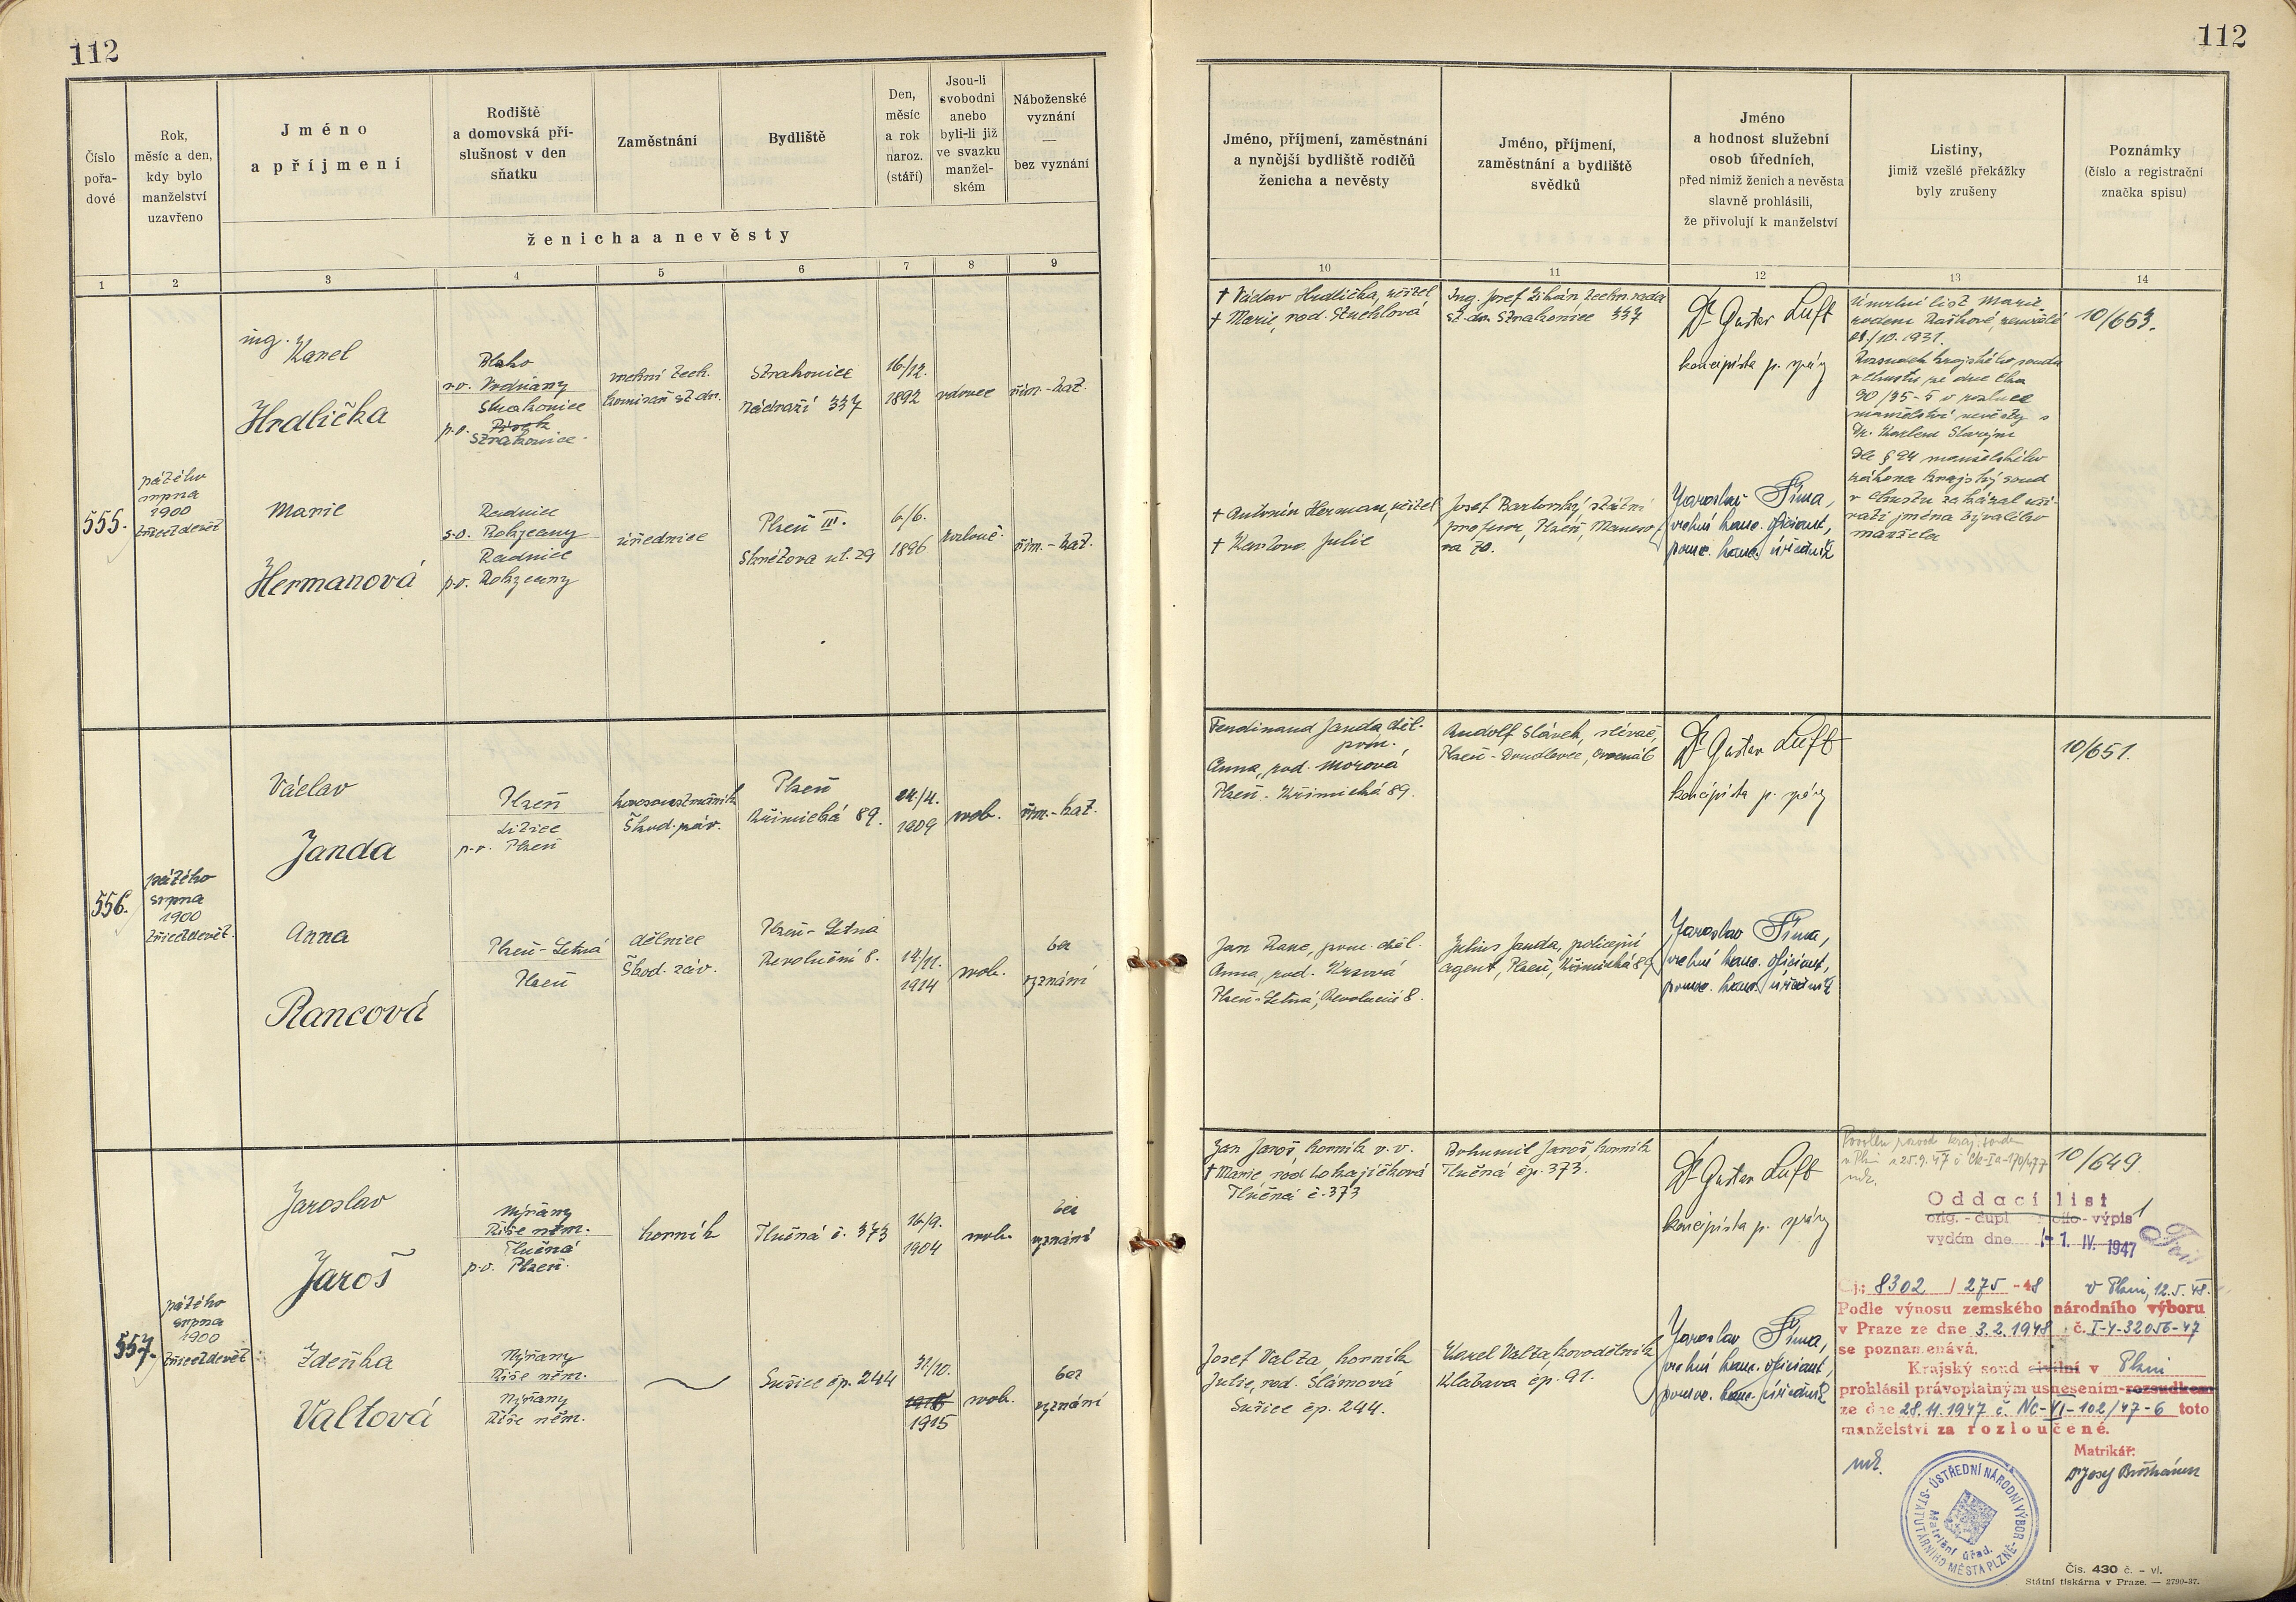 112
112
Číslo
pořa-
dové
Rok,
měsíc a den,
kdy bylo
manželství
uzavřeno
Jméno
a příjmení
Rodiště
a domovská pří-
slušnost v den
sňatku
Zaměstnání
Bydliště
Den,
měsíc
a rok
naroz.
(stáří)
Jsou-li
svobodni
anebo
byli-li již
ve svazku
manžel-
ském
Náboženské
vyznání
—
bez vyznání
ženicha a nevěsty
1 2 3 4 5 6 7 8 9
Jméno, příjmení, zaměstnání
a nynější bydliště rodičů
ženicha a nevěsty
Jméno, příjmení,
zaměstnání a bydliště
svědků
Jméno
a hodnost služební
osob úředních,
před nimiž ženich a nevěsta
slavně prohlásili,
že přivolují k manželství
Listiny,
jimiž vzešlé překážky
byly zrušeny
Poznámky
(číslo a registrační
značka spisu)
10 11 12 13 14
555.
pátého
srpna
1900
třicetdevět
ing.
Karel
Hrdlička
Blsko
s.o. Vodňany
Strakonice
p.o. Písek
Strakonice.
vrchní tech.
komisař st. dr.
Strakonice
Nádraží 337
16/12.
1892
vdovec
řím.-kat.
Marie
Hermanová
Radnice
s.o. Rokycany
Radnice
p.o. Rokycany
úřednice
Plzeň III.
Skrétova ul. 29
6/6.
1896
rozlouč.
řím.-kat.
† Václav Hrdlička, učitel
† Marie, rod. Stuchlová
Ing. Josef Žihán, techn. rada
st. dr. Strakonice 337
Dr Gustav Luft
koncipista p. správy
Úmrtní list Marie
rozené Raškové, zemřelé
28./10. 1931.
Rozsudek krajského soudu
v Chustu ze dne Cka
90/35-5 o rozluce
manželství nevěsty s
Dr. Karlem Starým
Dle § 24 manželského
zákona krajský soud
v Chustu zakázal uží-
vati jména bývalého
manžela
10/653.
† Antonín Herman, učitel
† Karlova Julie
Josef Bartovský, státní
profesor, Plzeň, Maneso-
va 70.
Jaroslav Šíma,
vrchní kanc. oficiant,
pomoc. kanc. úředník
556.
pátého
srpna
1900
třicetdevět.
Václav
Janda
Plzeň
Litice
p.o. Plzeň
kovosoustružník
Škod. záv.
Plzeň
Křimická 89.
24./4.
1909
svob.
řím.-kat.
Anna
Rancová
Plzeň-Letná
Plzeň
dělnice
Škod. záv.
Plzeň-Letná
Revoluční 8.
14/11.
1914
svob.
bez
vyznání
Ferdinand Janda, děl.
prům.
Anna, rod. Morová
Plzeň-Křimická 89.
Rudolf Slávek, slévač,
Plzeň-Doudlevce,
Dr Gustav Luft
koncipista p. správy
10/651.
Jan Ranc, pom. děl.
Anna, rod. Krsová
Plzeň-Letná, Revoluční 8.
Julius Janda, policejní
agent, Plzeň, Křimická 89
Jaroslav Šíma,
vrchní kanc. oficiant,
pomoc. kanc. úředník
557.
pátého
srpna
1900
třicetdevět
Jaroslav
Jaroš
Nýřany
Říše něm.
Tlučná
p.o. Plzeň.
horník
Tlučná č. 373
16/9.
1904
svob.
bez
vyznání
Zdeňka
Valtová
Nýřany
Říše něm.
Nýřany
Říše něm.
Sulice čp. 244
31/10.
1915
svob.
bez
vyznání
Jan Jaroš, horník v. v.
† Marie rod Lokajíčková
Tlučná č. 373
Bohumil Jaroš, horník
Tlučná čp. 373.
Dr Gustav Luft
koncipista p. správy
Povolen rozvod kraj. soudem
v Plzni z 25.9.47 č Ck-Ia-170/47-7
10/649.
Oddací list
orig. - dupl - výpis
vydán dne - 1. IV. 1947
Čj: 8302 / 275 - 48 V Plzni, 12.5.48.
Podle výnosu zemského národního výboru
v Praze ze dne 3.2.1948 č. I-4-32056-47
se poznamenává.
Krajský soud civilní v Plzni
prohlásil právoplatným usnesením-rozsudkem
ze dne 28.11.1947 č. Nc-VI-102/47-6 toto
manželství za rozloučené.
Matrikář:
Josef Valta, horník
Julie, rod. Slámová
Sulice čp. 244.
Karel Valta, kovodělník
Klabava čp. 91.
Jaroslav Šíma,
vrchní kanc. oficiant,
pomoc. kanc. úředník
ÚSTŘEDNÍ NÁRODNÍ VÝBOR
STATUTÁRNÍHO MĚSTA PLZNĚ
Matriční úřad.
Čís. 430 č. - vl.
Státní tiskárna v Praze. — 2790-37.